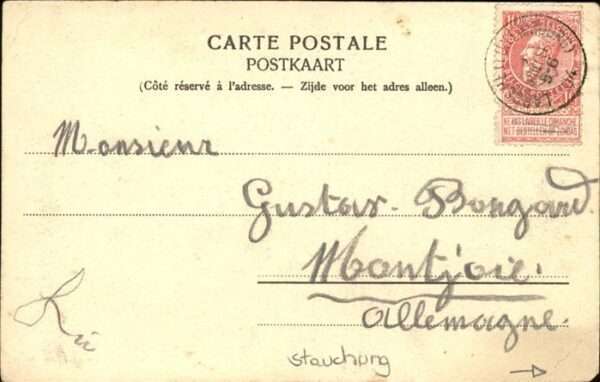 CARTE POSTALE
POSTKAART
(Côté réservé à l'adresse. — Zijde voor het adres alleen.)
NE PAS LIVRER LE DIMANCHE
NIET BESTELLEN OP ZONDAG
Monsieur
Gustav. Bongard.
Montjoie.
Allemagne.
stauchung